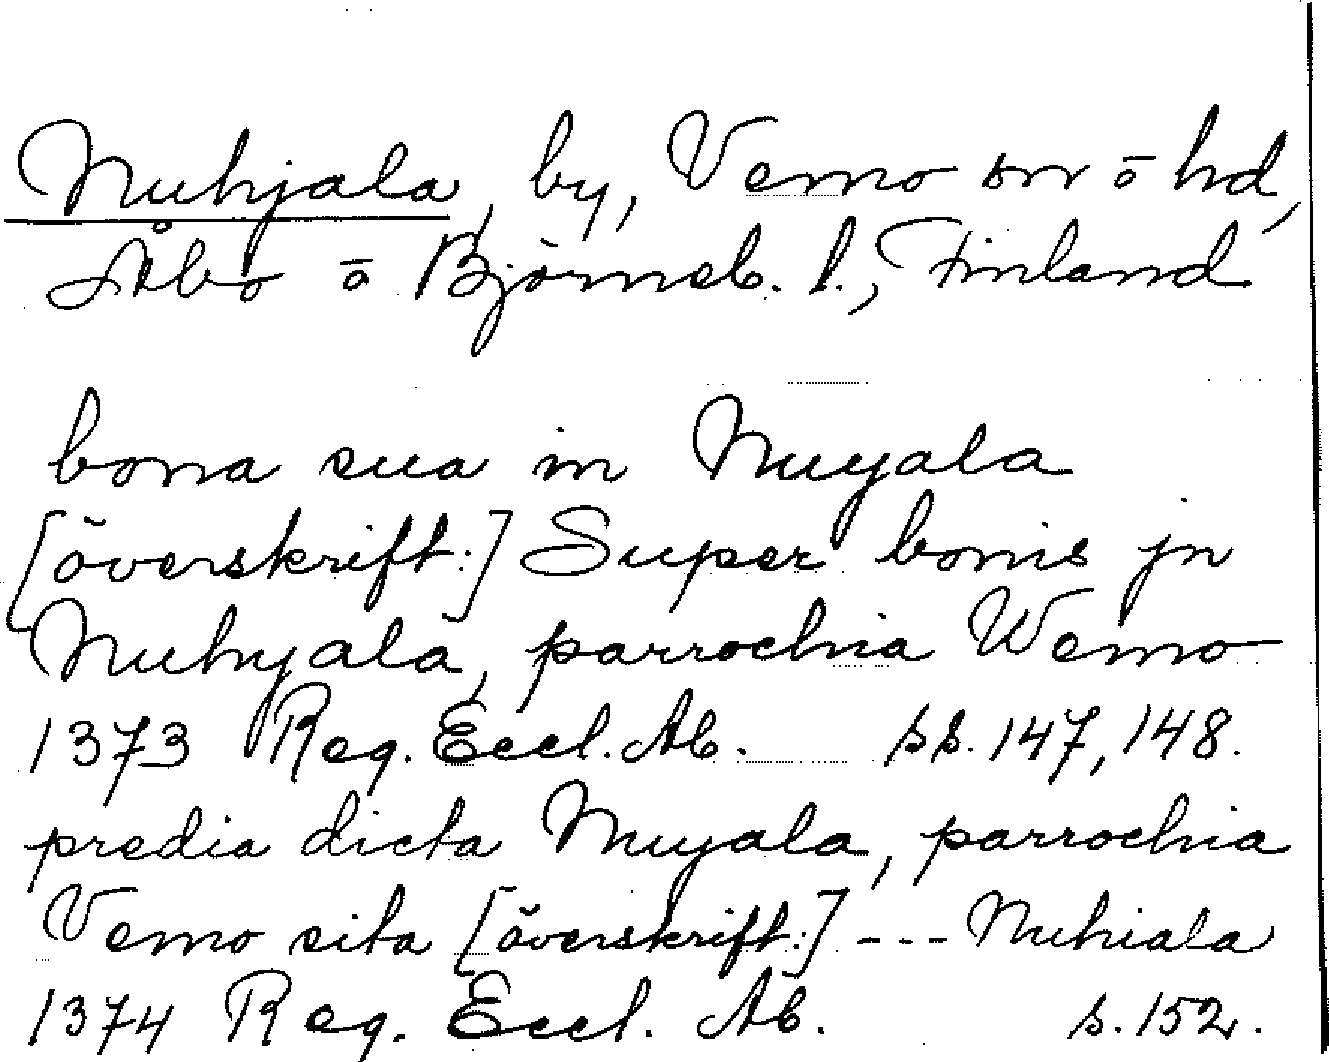 Nuhjala, by, Vemo sn o hd,
Åbo o Björneb. l., Finland
bona sua in Nuyala
[överskrift:] Super bonis jn
Nuhyala, parrochia Wemo
1373 Reg. Eccl. Ab. ss. 147, 148.
predia dicta Nuyala, parrochia
Vemo sita [överskrift:] --- Nuhiala
1374 Reg. Eccl. Ab. s. 152.